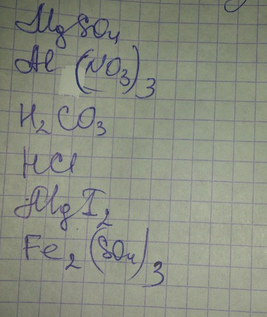 MgSO4
Al(NO3)3
H2CO3
HCl
MgI2
Fe2(SO4)3